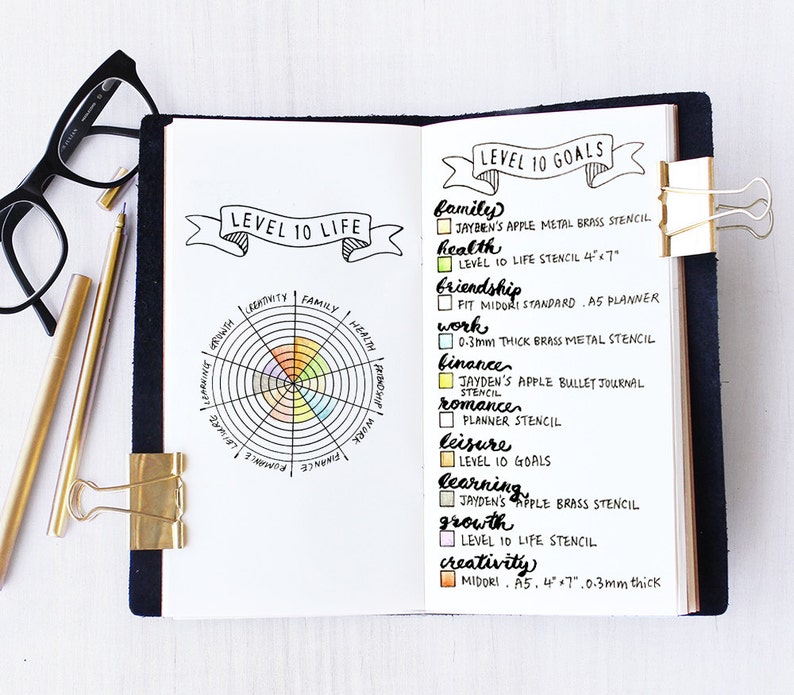 LEVEL 10 LIFE
CREATIVITY
FAMILY
HEALTH
FRIENDSHIP
WORK
FINANCE
ROMANCE
LEISURE
LEARNING
GROWTH
LEVEL 10 GOALS
family
JAYDEN'S APPLE METAL BRASS STENCIL
health
LEVEL 10 LIFE STENCIL 4"x7"
friendship
FIT MIDORI STANDARD . A5 PLANNER
work
0.3mm THICK BRASS METAL STENCIL
finance
JAYDEN'S APPLE BULLET JOURNAL
STENCIL
romance
PLANNER STENCIL
leisure
LEVEL 10 GOALS
learning
JAYDEN'S APPLE BRASS STENCIL
growth
LEVEL 10 LIFE STENCIL
creativity
MIDORI . A5 . 4"x7" . 0.3mm thick